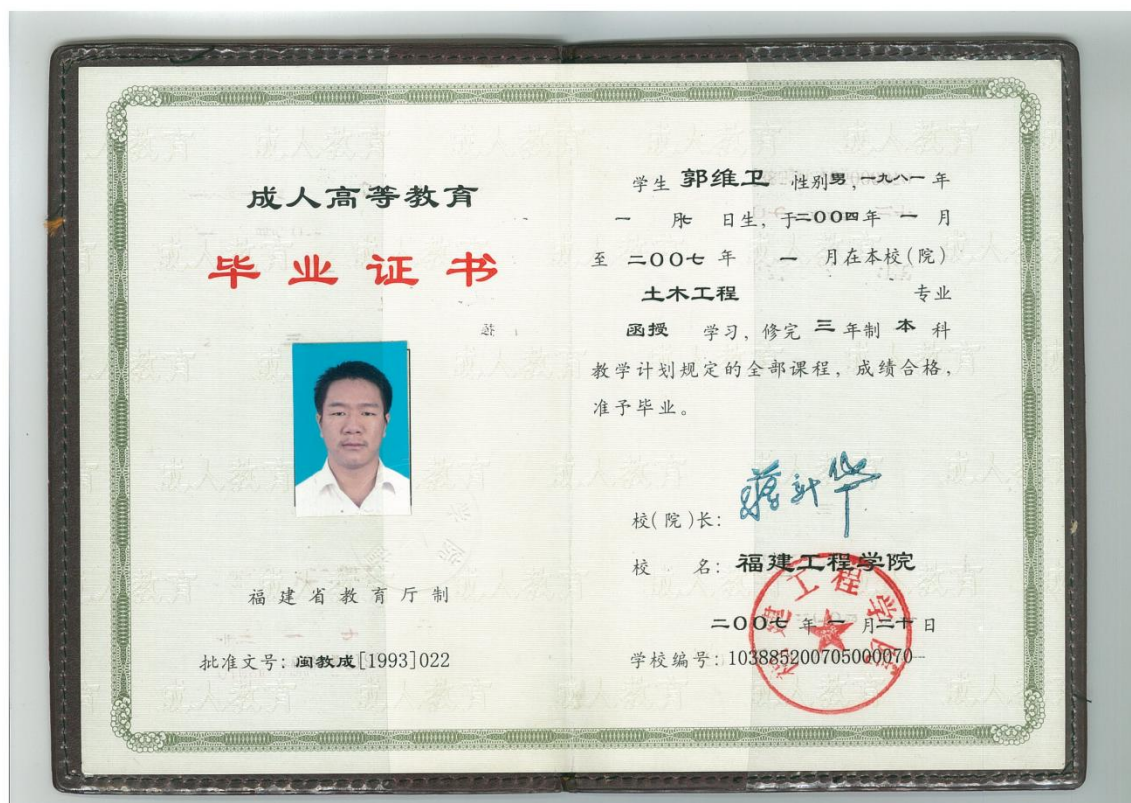 成人高等教育
毕业证书
福建省教育厅制
批准文号：闽教成[1993]022
学生 郭维卫 性别男，一九八一年
一 月 日生，于二00四年 一 月
至 二00七 年 一 月在本校(院)
土木工程 专业
函授 学习，修完 三 年制 本 科
教学计划规定的全部课程，成绩合格，
准予毕业。
校(院)长：蒋新华
校 名：福建工程学院
二00七 年 一 月二十日
学校编号：103885200705000070
福建工程学院